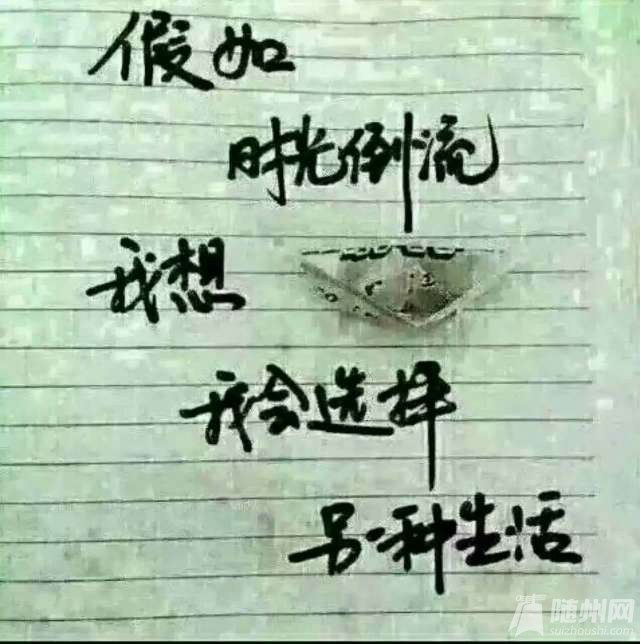 假如
时光倒流
我想
我会选择
另一种生活
随州网
suizhoushi.com